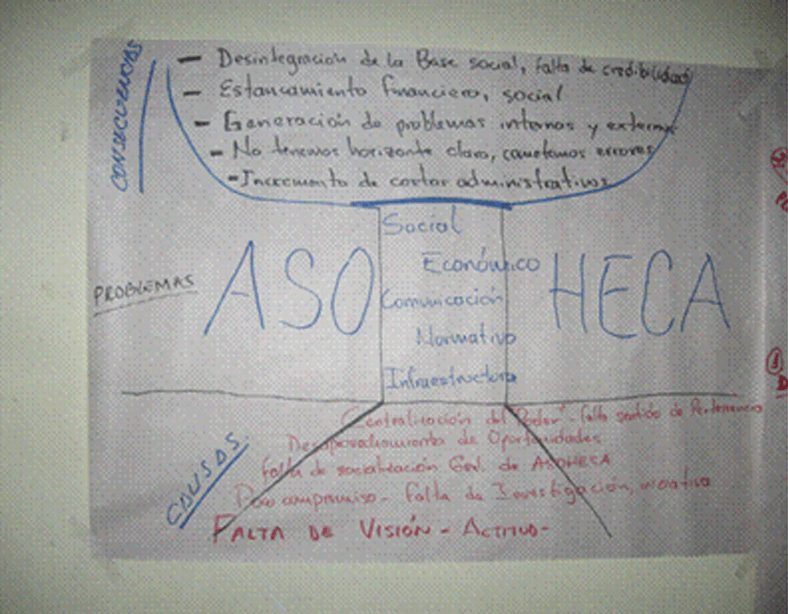 CONSECUENCIAS
- Desintegración de la Base social, falta de credibilidad
- Estancamiento financiero, social
- Generación de problemas internos y externos
- No tenemos horizonte claro, cometemos errores
- Incremento de costos administrativos
PROBLEMAS
ASO HECA
Social
Económico
Comunicación
Normativo
Infraestructura
CAUSAS
Centralización del Poder - falta sentido de Pertenencia
Desaprovechamiento de Oportunidades
falta de socialización Gral. de ASOHECA
Poco compromiso - falta de Investigación,
FALTA DE VISIÓN - ACTITUD -